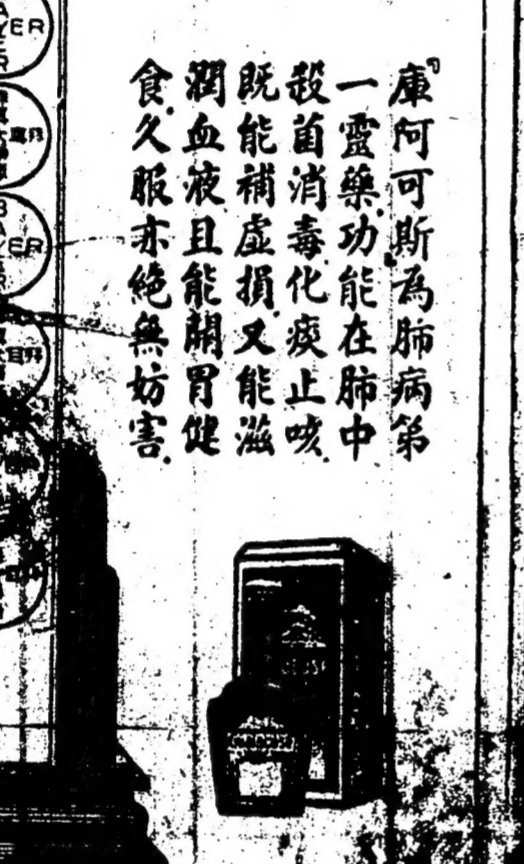 『庫阿可斯為肺病第
一靈藥.功能在肺中
殺菌消毒.化痰止咳.
既能補虛損.又能滋
潤血液.且能開胃健
食.久服亦絶無妨害.
ER
BAYER
ER